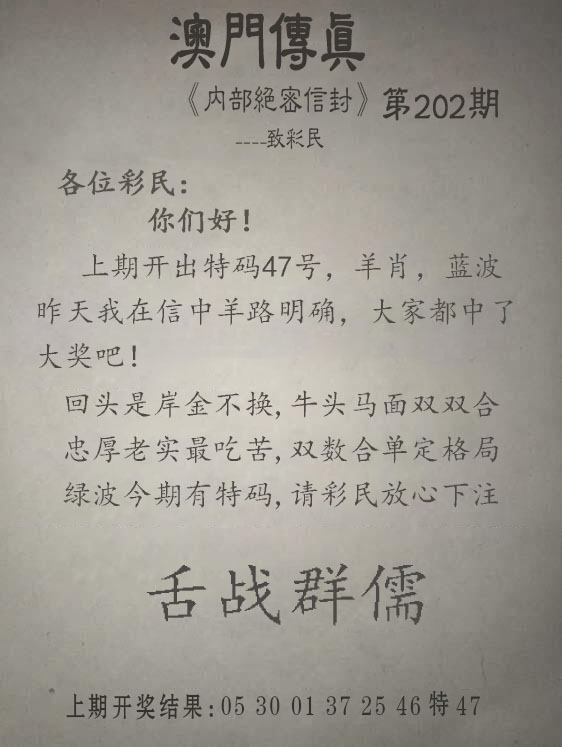 澳門傳真
《内部絕密信封》第202期
----致彩民
各位彩民：
你们好！
上期开出特码47号，羊肖，蓝波
昨天我在信中羊路明确，大家都中了
大奖吧！
回头是岸金不换,牛头马面双双合
忠厚老实最吃苦,双数合单定格局
绿波今期有特码,请彩民放心下注
舌战群儒
上期开奖结果:05 30 01 37 25 46特47